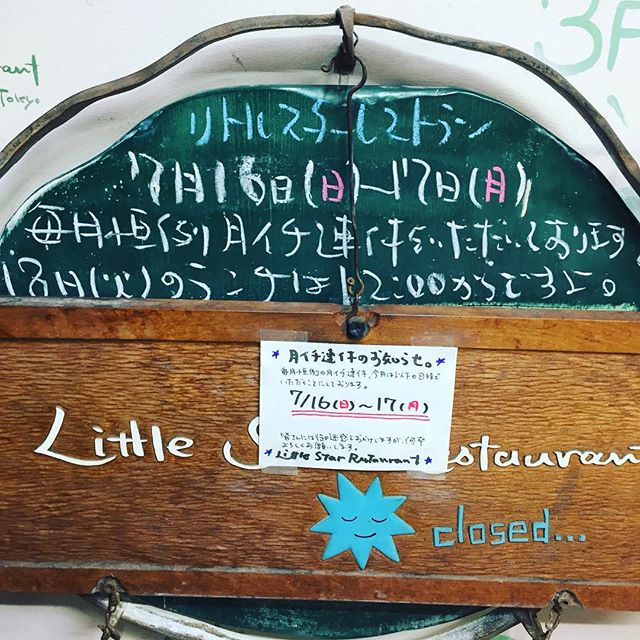 リトルスターレストラン
7月16日(日)〜17日(月)
毎月恒例月イチ連休をいただいております
18日(火)のランチは12:00からですよ。
rant
Tokyo
月イチ連休のお知らせ。
毎月恒例の月イチ連休、今月は以下の日程で
いただくことにしております。
7/16(日)〜17(月)
皆さんには御迷惑をおかけしますが、何卒
よろしくお願いします。
Little Star Restaurant
Little S staurant
closed...